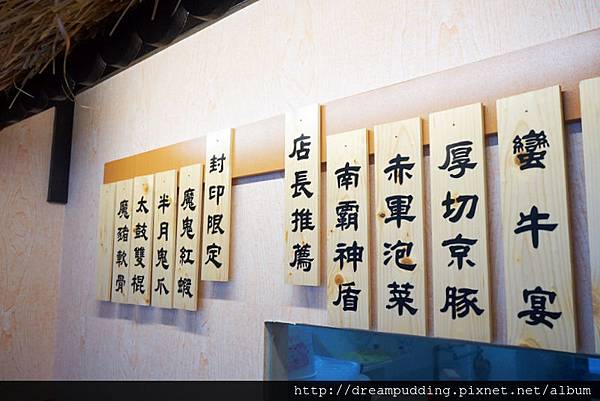 蠻牛宴
厚切京豚
赤軍泡菜
南霸神盾
店長推薦
封印限定
魔鬼紅蝦
半月鬼爪
太鼓雙棍
魔豬軟骨
http://dreampudding.pixnet.net/album